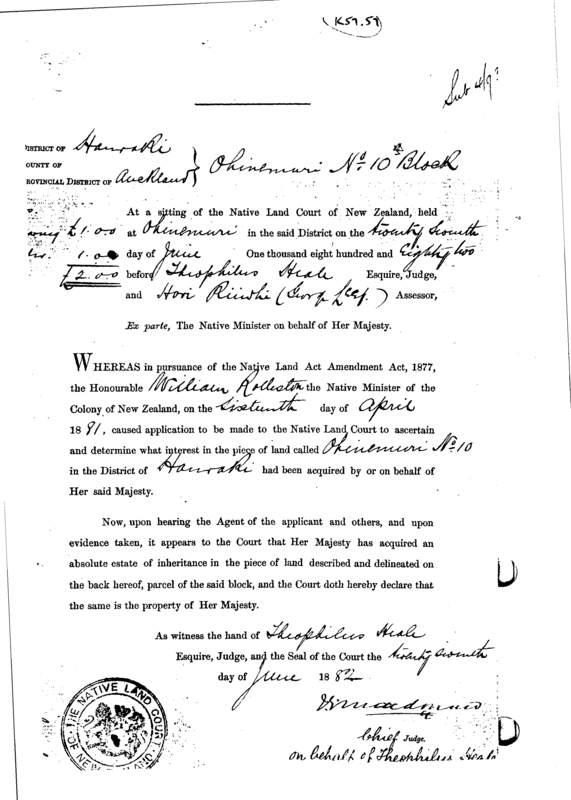 (K59.59)
Sub 4/9
DISTRICT OF Hauraki
OUNTY OF
ROVINCIAL DISTRICT OF Auckland } Ohinemuri No. 10 Block
At a sitting of the Native Land Court of New Zealand, held
£1.0.0 at Ohinemuri in the said District on the twenty seventh
1.0.0 day of June One thousand eight hundred and Eighty two
£2.0.0 before Theophilus Heale Esquire, Judge,
and Hori (George ) Assessor,
Ex parte, The Native Minister on behalf of Her Majesty.
WHEREAS in pursuance of the Native Land Act Amendment Act, 1877,
the Honourable William Rolleston the Native Minister of the
Colony of New Zealand, on the Sixteenth day of April
1881, caused application to be made to the Native Land Court to ascertain
and determine what interest in the piece of land called Ohinemuri No. 10
in the District of Hauraki had been acquired by or on behalf of
Her said Majesty.
Now, upon hearing the Agent of the applicant and others, and upon
evidence taken, it appears to the Court that Her Majesty has acquired an
absolute estate of inheritance in the piece of land described and delineated on
the back hereof, parcel of the said block, and the Court doth hereby declare that
the same is the property of Her Majesty.
As witness the hand of Theophilus Heale
Esquire, Judge, and the Seal of the Court the twenty seventh
day of June 1882
Chief Judge.
on behalf of Theophilus Heale
THE NATIVE LAND COURT OF NEW ZEALAND